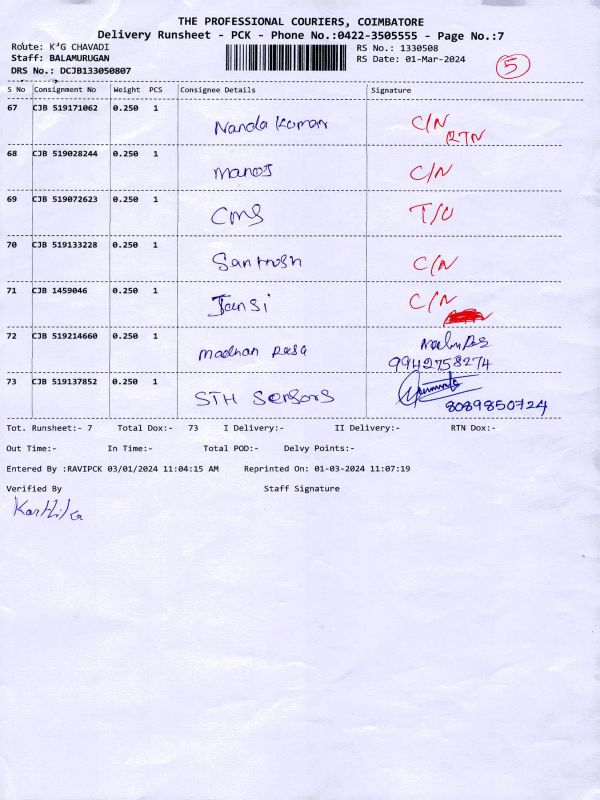 THE PROFESSIONAL COURIERS, COIMBATORE
Delivery Runsheet - PCK - Phone No.:0422-3505555 - Page No.:7
Route: K G CHAVADI RS No.: 1330508
Staff: BALAMURUGAN RS Date: 01-Mar-2024
DRS No.: DCJB133050807
5
S No Consignment No Weight PCS Consignee Details Signature
67 CJB 519171062 0.250 1 Nanda Kumar C/N
RTN
68 CJB 519028244 0.250 1 Manoj C/N
69 CJB 519072623 0.250 1 CMS T/O
70 CJB 519133228 0.250 1 Santhosh C/N
71 CJB 1459046 0.250 1 Jansi C/N
72 CJB 519214660 0.250 1 Madhan Rasa
9942758274
73 CJB 519137852 0.250 1 STH Sensors
8089850724
Tot. Runsheet:- 7 Total Dox:- 73 I Delivery:- II Delivery:- RTN Dox:-
Out Time:- In Time:- Total POD:- Delvy Points:-
Entered By :RAVIPCK 03/01/2024 11:04:15 AM Reprinted On: 01-03-2024 11:07:19
Verified By Staff Signature
Karthika